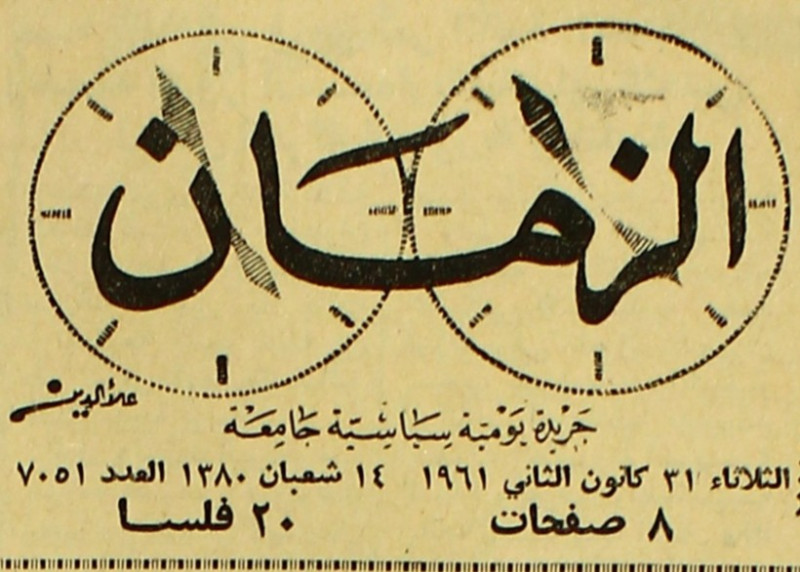 الزمان
علاءالدين
جريدة يومية سياسية جامعة
الثلاثاء ٣١ كانون الثاني ١٩٦١ ١٤ شعبان ١٣٨٠ العدد ٧٠٥١
٨ صفحات ٢٠ فلسا